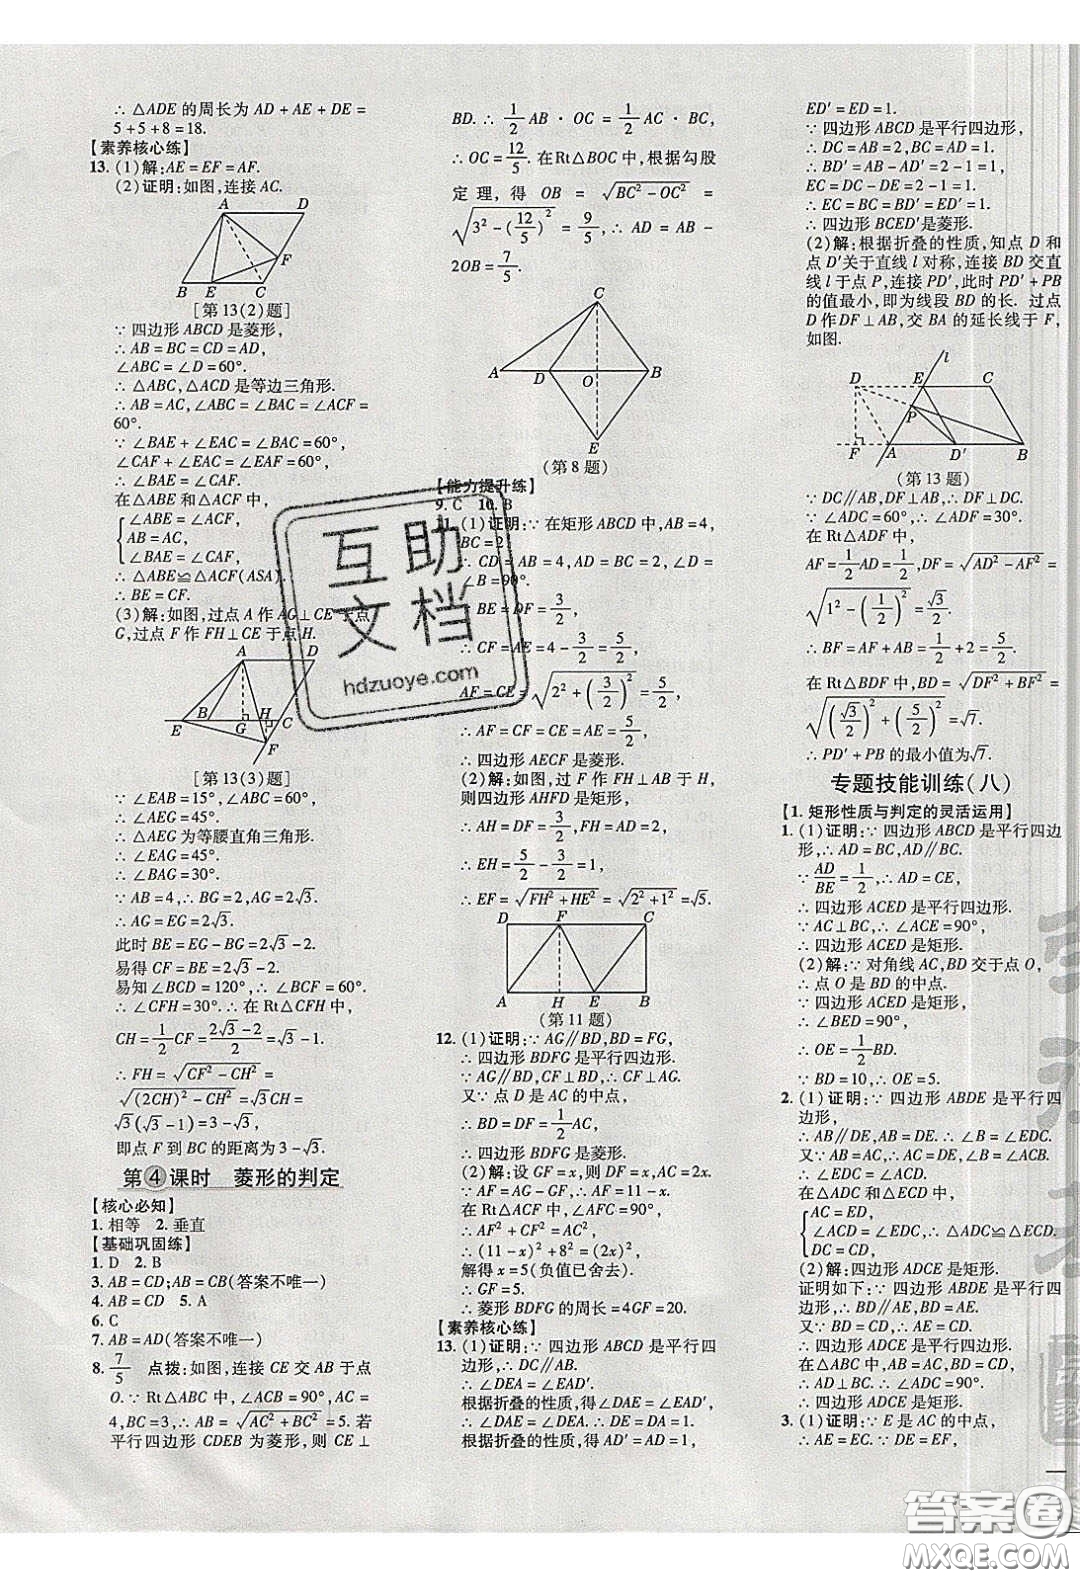 ∴ △ADE 的周长为 AD + AE + DE =
5 + 5 + 8 = 18.
【素养核心练】
13. (1)解:AE = EF = AF.
(2)证明:如图,连接 AC.
A D
F
B E C
[第 13(2)题]
∵ 四边形 ABCD 是菱形,
∴ AB = BC = CD = AD,
∠ABC = ∠D = 60°.
∴ △ABC,△ACD 是等边三角形.
∴ AB = AC,∠ABC = ∠BAC = ∠ACF =
60°.
∵ ∠BAE + ∠EAC = ∠BAC = 60°,
∠CAF + ∠EAC = ∠EAF = 60°,
∴ ∠BAE = ∠CAF.
在 △ABE 和 △ACF 中,
∠ABE = ∠ACF,
AB = AC,
∠BAE = ∠CAF,
∴ △ABE≌△ACF(ASA).
∴ BE = CF.
(3)解:如图,过点 A 作 AG⊥CE 于点
G,过点 F 作 FH⊥CE 于点 H.
A D
E B G H C
F
[第 13(3)题]
∵ ∠EAB = 15°,∠ABC = 60°,
∴ ∠AEG = 45°.
∴ △AEG 为等腰直角三角形.
∴ ∠EAG = 45°.
∴ ∠BAG = 30°.
∵ AB = 4,∴ BG = 2,AG = 2√3.
∴ AG = EG = 2√3.
此时 BE = EG - BG = 2√3 - 2.
易得 CF = BE = 2√3 - 2.
易知 ∠BCD = 120°,∴ ∠FCH = 60°.
∴ ∠CFH = 30°.∴ 在 Rt△CFH 中,
CH = 1/2 CF = (2√3 - 2)/2 = √3 - 1.
∴ FH = √(CF² - CH²) =
√((2CH)² - CH²) = √3CH =
√3(√3 - 1) = 3 - √3,
即点 F 到 BC 的距离为 3 - √3.
第④课时 菱形的判定
【核心必知】
1. 相等 2. 垂直
【基础巩固练】
1. D 2. B
3. AB = CD;AB = CB(答案不唯一)
4. AB = CD 5. A
6. C
7. AB = AD(答案不唯一)
8. 7/5 点拨:如图,连接 CE 交 AB 于点
O. ∵ Rt△ABC 中,∠ACB = 90°,AC =
4,BC = 3,∴ AB = √(AC² + BC²) = 5. 若
平行四边形 CDEB 为菱形,则 CE⊥
BD. ∴ 1/2 AB · OC = 1/2 AC · BC,
∴ OC = 12/5. 在Rt△BOC 中,根据勾股
定理,得 OB = √(BC² - OC²) =
√(3² - (12/5)²) = 9/5,∴ AD = AB -
2OB = 7/5.
C
A D O B
E
(第 8 题)
【能力提升练】
9. C 10. B
11. (1)证明:∵ 在矩形 ABCD 中,AB = 4,
BC = 2,
∴ CD = AB = 4,AD = BC = 2,∠D =
∠B = 90°.
BE = DF = 3/2,
∴ CF = AE = 4 - 3/2 = 5/2,
AF = CE = √(2² + (3/2)²) = 5/2,
∴ AF = CF = CE = AE = 5/2.
∴ 四边形 AECF 是菱形.
(2)解:如图,过 F 作 FH⊥AB 于 H,
则四边形 AHFD 是矩形,
∴ AH = DF = 3/2,FH = AD = 2,
∴ EH = 5/2 - 3/2 = 1,
∴ EF = √(FH² + HE²) = √(2² + 1²) = √5.
D F C
A H E B
(第 11 题)
12. (1)证明:∵ AG∥BD,BD = FG,
∴ 四边形 BDFG 是平行四边形.
∵ AG∥BD,CF⊥BD,∴ CF⊥AG.
又∵ 点 D 是 AC 的中点,
∴ BD = DF = 1/2 AC.
∴ 四边形 BDFG 是菱形.
(2)解:设 GF = x,则 BD = DF = x.
∵ AF = AG - GF,∴ AF = 11 - x.
在 Rt△ACF 中,∠CFA = 90°,
∴ AF² + CF² = AC².
∴ (11 - x)² + 8² = (2x)²,
解得 x = 5(负值已舍去).
∴ GF = 5.
∴ 菱形 BDFG 的周长 = 4GF = 20.
【素养核心练】
13. (1)证明:∵ 四边形 ABCD 是平行四
边形,∴ DC∥AB.
∴ ∠DEA = ∠EAD′.
根据折叠的性质,得∠DAE = ∠EAD′,
∴ ∠DAE = ∠DEA. ∴ DE = DA = 1.
根据折叠的性质,得 AD′ = AD = 1,
ED′ = ED = 1.
∵ 四边形 ABCD 是平行四边形,
∴ DC = AB = 2,BC = AD = 1.
∴ BD′ = AB - AD′ = 2 - 1 = 1,
EC = DC - DE = 2 - 1 = 1.
∴ EC = BC = BD′ = ED′ = 1.
∴ 四边形 BCED′是菱形.
(2)解:根据折叠的性质,知点 D 和
点 D′关于直线 l 对称,连接 BD 交直
线 l 于点 P,连接 PD′,此时 PD′ + PB
的值最小,即为线段 BD 的长. 过点
D 作 DF⊥AB,交 BA 的延长线于 F,
如图.
l
D E C
P
F A D′ B
(第 13 题)
∵ DC∥AB,DF⊥AB,∴ DF⊥DC.
∵ ∠ADC = 60°,∴ ∠ADF = 30°.
在 Rt△ADF 中,
AF = 1/2 AD = 1/2,DF = √(AD² - AF²) =
√(1² - (1/2)²) = √3/2.
∴ BF = AF + AB = 1/2 + 2 = 5/2.
在 Rt△BDF 中,BD = √(DF² + BF²) =
√((√3/2)² + (5/2)²) = √7.
∴ PD′ + PB 的最小值为√7.
专题技能训练(八)
【1. 矩形性质与判定的灵活运用】
1. (1)证明:∵ 四边形 ABCD 是平行四边
形,∴ AD = BC,AD∥BC.
∵ AD/BE = 1/2,∴ AD = CE,
∴ 四边形 ACED 是平行四边形.
∵ AC⊥BC,∴ ∠ACE = 90°,
∴ 四边形 ACED 是矩形.
(2)解:∵ 对角线 AC,BD 交于点 O,
∴ 点 O 是 BD 的中点.
∵ 四边形 ACED 是矩形,
∴ ∠BED = 90°,
∴ OE = 1/2 BD.
∵ BD = 10,∴ OE = 5.
2. (1)证明:∵ 四边形 ABDE 是平行四
边形,
∴ AB∥DE,AB = DE,∠B = ∠EDC.
又∵ AB = AC,∴ AC = DE,∠B = ∠ACD.
∴ ∠EDC = ∠ACD.
在 △ACD 和 △EDC 中,
AC = ED,
∠ACD = ∠EDC,∴ △ACD≌△EDC.
DC = CD,
(2)解:四边形 ADCE 是矩形.
证明如下:∵ 四边形 ABDE 是平行四
边形,∴ BD∥AE,BD = AE.
又∵ BD = CD,∴ AE = CD,
∴ 四边形 ADCE 是平行四边形.
又∵ AB = AC,BD = CD,
∴ AD⊥BC,∴ ∠ADC = 90°,
∴ 四边形 ADCE 是矩形.
3. (1)证明:∵ E 是 AC 的中点,
∴ AE = EC. ∵ DE = EF,
互助
文档
hdzuoye.com
答案圈
MXQE.COM